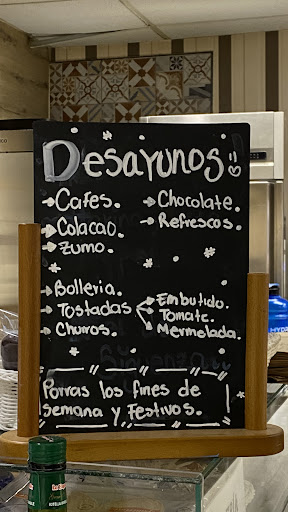 Desayunos
→ Cafes.
→ Chocolate.
→ Colacao.
→ Refrescos.
→ Zumo.
→ Bolleria.
→ Tostadas
→ Embutido.
→ Tomate.
→ Mermelada.
→ Churros.
Porras los fines de
semana y Festivos.